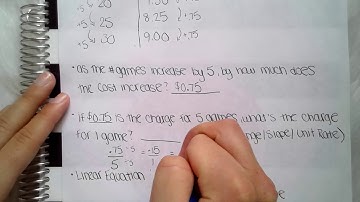 +5 20 7.50 +.75
+5 25 8.25 +.75
+5 30 9.00 +.75
• as the # games increase by 5, by how much does
the cost increase? $0.75
• if $0.75 is the charge for 5 games, what's the charge
for 1 game? Slope/Unit Rate)
.75 ÷5 = .15
5 ÷5 1
• Linear Equation